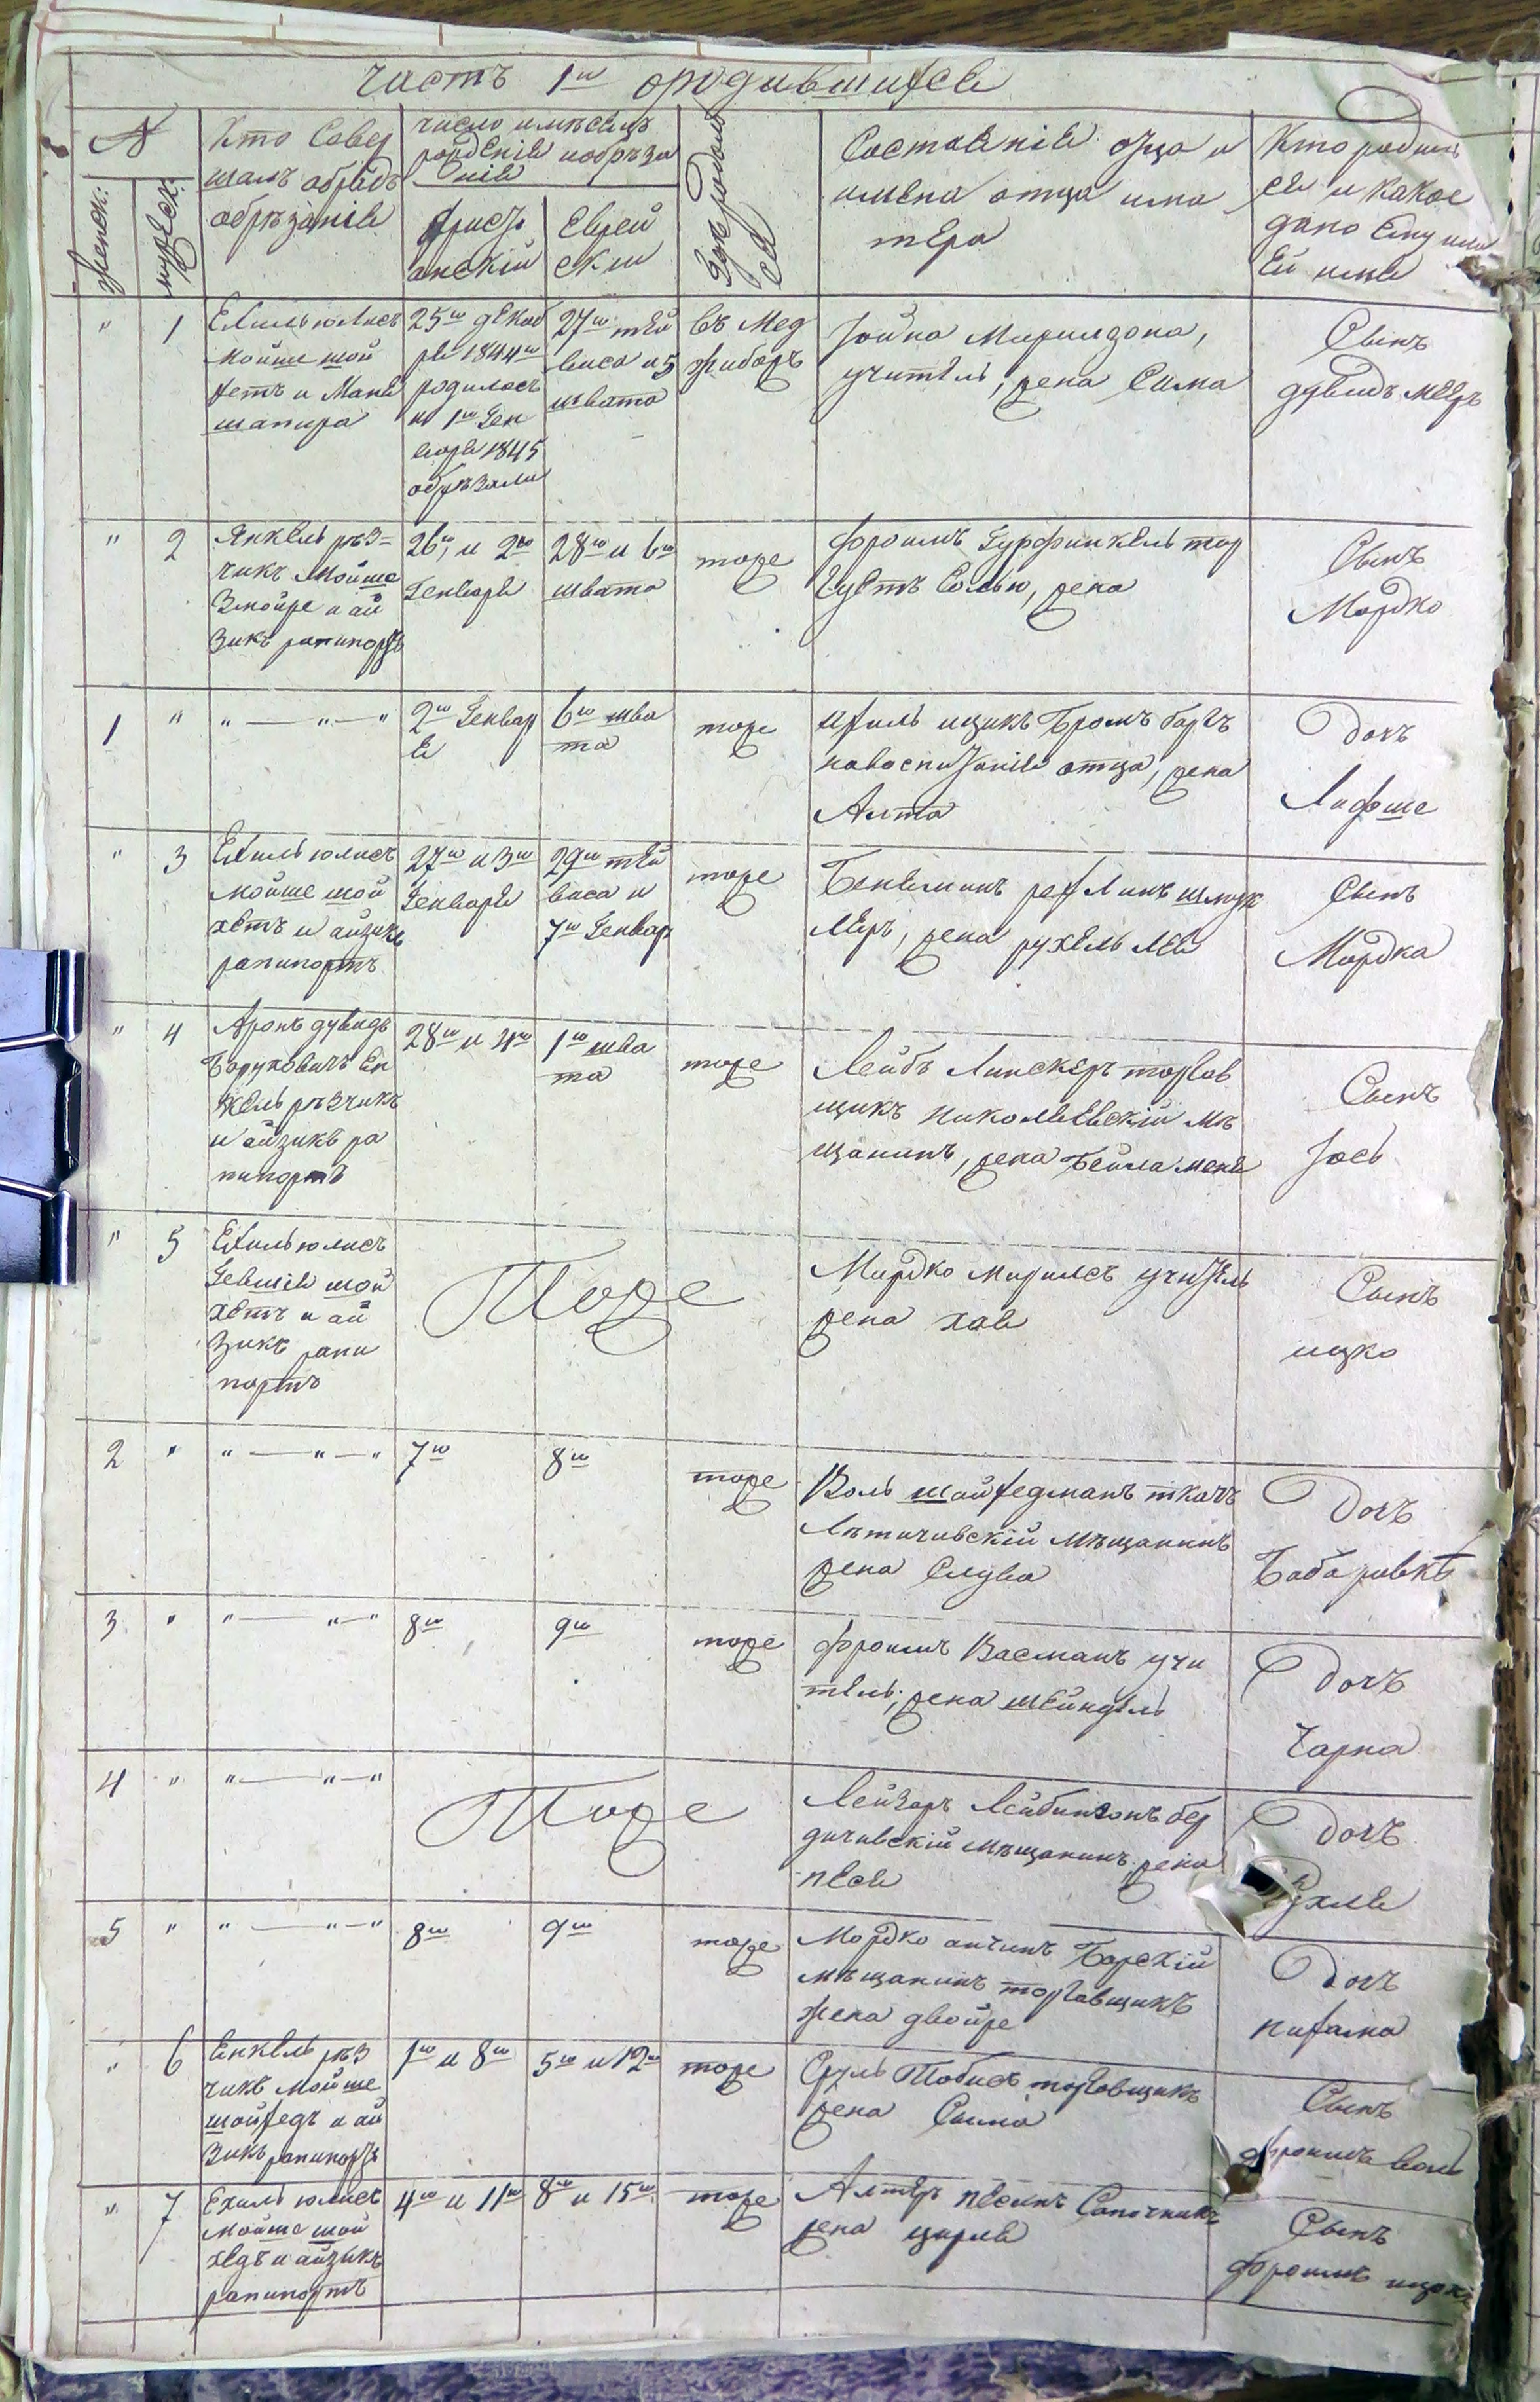 часть 1ш ородившихся
№
женск:
мужеск:
Кто Совер
шалъ обрядъ
обрѣзанія
число имѣсяцъ
рожденія иобрѣза
нія
христі
анскій
Еврей
скш
Где родил
ся
Состояніе отца и
имена отца има
тера
Кто родил
ся и какое
дано Ему или
Ей имя
" 1
Ехиль юлисъ
мойше шой
хетъ и Маня
шапира
25ш декаб
ря 1844ш
родилась
и 1ш Ген
варя 1845
обрѣзали
27ш тей
виса и 5
швата
въ Мед
жиборъ
учитель, жена Сима
Сынъ
дувидъ мееръ
" 2
Янкель рѣз=
чикъ Мойше
Змойре и ай
зикъ рапипортъ
26ш и 2ш
Генваря
28ш и 6ш
швата
тоже
фроимъ Гурфинкель тор
гуетъ Солью, жена
Сынъ
Мордко
1 "
" — " — "
2ш Генвар
я
6ш шва
та
тоже
ихиль ицикъ Бромъ баргъ
жена
Алта
Дочъ
Лифше
" 3
Ехиль юлисъ
мойше шой
хетъ и айзикъ
рапипортъ
27ш и 3ш
Генваря
29ш тей
виса и
7ш Генвар
тоже
меръ, жена рухель лея
Сынъ
Мордка
" 4
Аронъ дувидъ
Боруховичъ Ен
кель рѣзчикъ
и айзикъ ра
пипортъ
28ш и 4ш
1ш шва
та
тоже
Лейбъ Линскеръ торгов
щикъ николаевскій мѣ
щанинъ, жена Бейла меня
Сынъ
Іось
" 5
Ехиль юлисъ
Гевшія шой
хетъ и ай
зикъ рапи
портъ
Тоже
Мордко мирилсъ учитель
жена хая
Сынъ
ицко
2 "
" — " — "
7ш
8ш
тоже
Воль шайхедманъ ткачъ
Лѣтичивскій мѣщанинъ
жена Слува
Дочъ
Баба ривкѣ
3 "
" — " — "
8ш
9ш
тоже
фроимъ Васманъ учи
тель, жена шейндель
Дочъ
Чарна
4 "
" — " — "
Тоже
Лейзоръ Лейбинзонъ бер
дичивскій мѣщанинъ, жена
песя
Дочъ
Рухля
5 "
" — " — "
8ш
9ш
тоже
Мордко анчинъ Барскій
мѣщанинъ торговщикъ
жена двойре
Дочъ
нихама
" 6
Янкель рѣз
чикъ Мойше
шойхедъ и ай
зикъ рапипортъ
1ш и 8ш
5ш и 12ш
тоже
Сруль Тобисъ торговщикъ
жена Сима
Сынъ
фроимъ волъ
" 7
Ехиль юлисъ
мойше шой
хедъ и айзыкъ
рапипортъ
4ш и 11ш
8ш и 15ш
тоже
Алтеръ песинъ Сапожникъ
жена цирля
Сынъ
фроимъ ицокъ